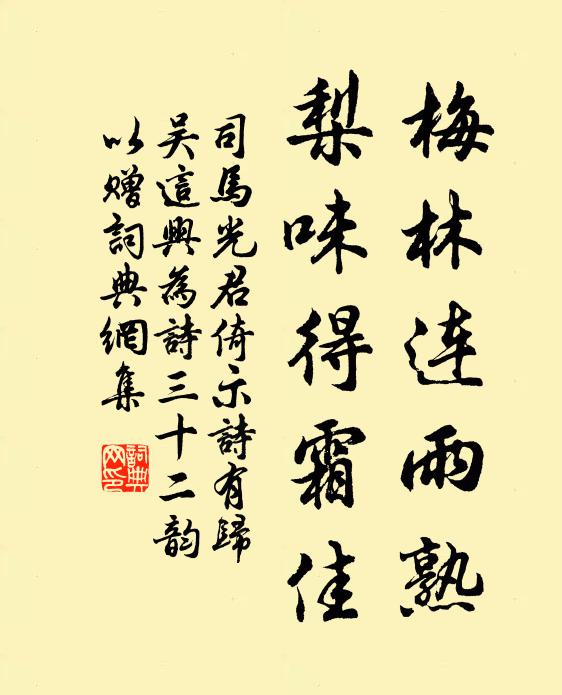 梅林連雨熟
梨味得霜佳
司馬光君倚示詩有歸
吳這興為詩三十二韵
以贈詞典網集
詞典网印